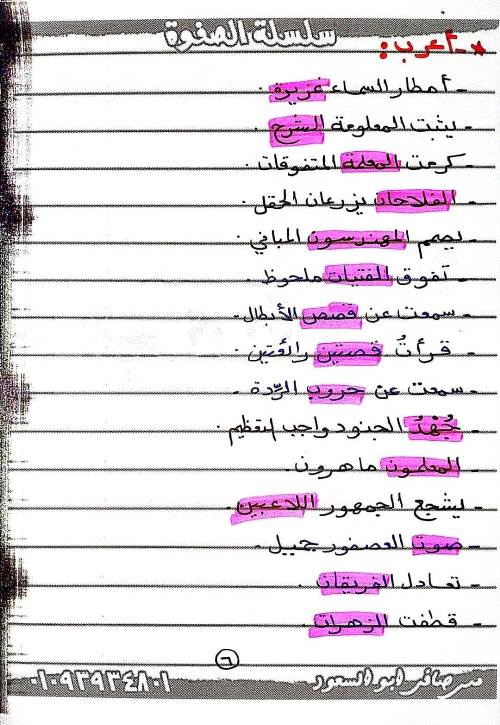 سلسلة الصفوة
* - أعرب :
- أمطار السماء غزيرة .
- يثبت المعلومة الشرح .
- كرمت المعلمة المتفوقات .
- الفلاحان يزرعان الحقل .
- يصمم المهندسون المباني .
- تفوق الفتيات ملحوظ .
- سمعت عن قصص الأبطال .
- قرأتُ قصتين رائعتين .
- سمعت عن حروب الرّدة .
- جُهْدُ الجنود واجب التعظيم .
- المعلمون ماهرون .
- يشجع الجمهور اللاعبين .
- صوت العصفور جميل .
- تعادل الفريقان .
- قطفت الزهرات .
٦
مس صافى ابو السعود
٠١٠٩٣٩٣٤٨٠١